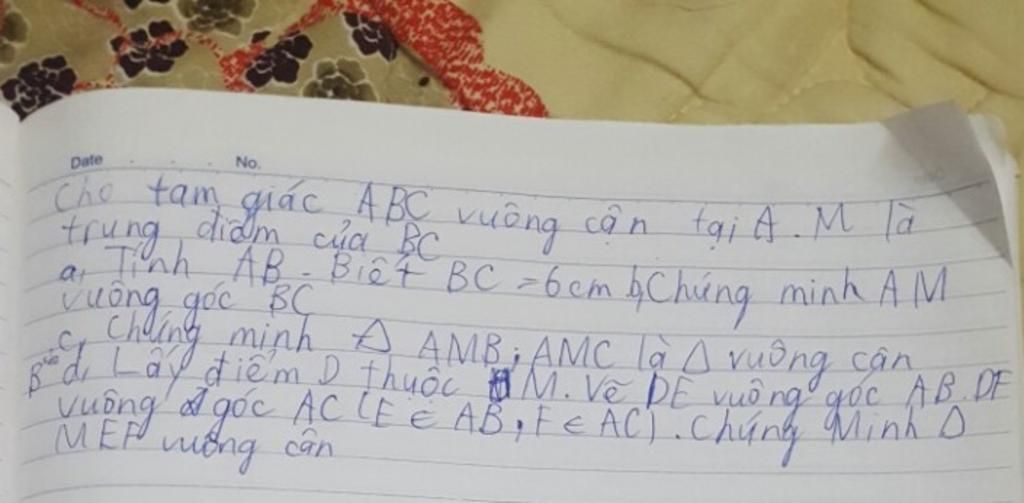 Date No.
Cho tam giác ABC vuông cận tại A. M là
trung điểm của BC
a, Tính AB. Biết BC = 6cm b, Chứng minh AM
vuông góc BC
c, Chứng minh Δ AMB; AMC là Δ vuông cận
d, Lấy điểm D thuộc M. Vẽ DE vuông góc AB. DF
vuông góc AC (E ∈ AB, F ∈ AC). Chứng Minh Δ
MEF vuông cân